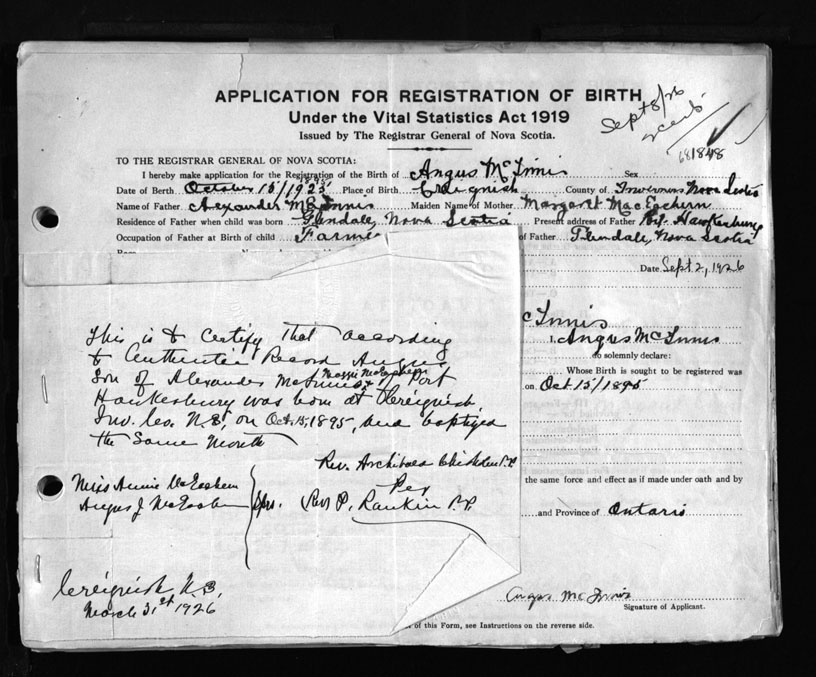 APPLICATION FOR REGISTRATION OF BIRTH
Under the Vital Statistics Act 1919
Issued by The Registrar General of Nova Scotia.
Sept 8/26
1848
TO THE REGISTRAR GENERAL OF NOVA SCOTIA:
I hereby make application for the Registration of the Birth of Angus McInnis Sex
Date of Birth October 15/1925 1895 Place of Birth Creignish County of Inverness Nova Scotia
Name of Father Alexander McInnis Maiden Name of Mother Margaret MacEachern
Residence of Father when child was born Glendale, Nova Scotia Present address of Father Port Hawkesbury
Occupation of Father at Birth of child Farmer of Father Glendale, Nova Scotia
Date Sept 2, 1926
This is to Certify that according
to Authentic Record Angus
Son of Alexander McInnis & Maggie McEachern of Port
Hawkesbury was born at Creignish
Inv. Co. N.S., on Oct. 15, 1895, and baptized
the same month
Rev. Archibald Chisholm P.P.
Per
Rev P. Rankin P.P.
Miss Annie McEachern
Angus J McEachern
Sprs.
Creignish N.S.
March 31st 1926
c Innis
I, Angus McInnis
do solemnly declare:
Whose Birth is sought to be registered was
on Oct 15/1895
the same force and effect as if made under oath and by
and Province of Ontario
Angus McInnis
Signature of Applicant.
of this Form, see Instructions on the reverse side.